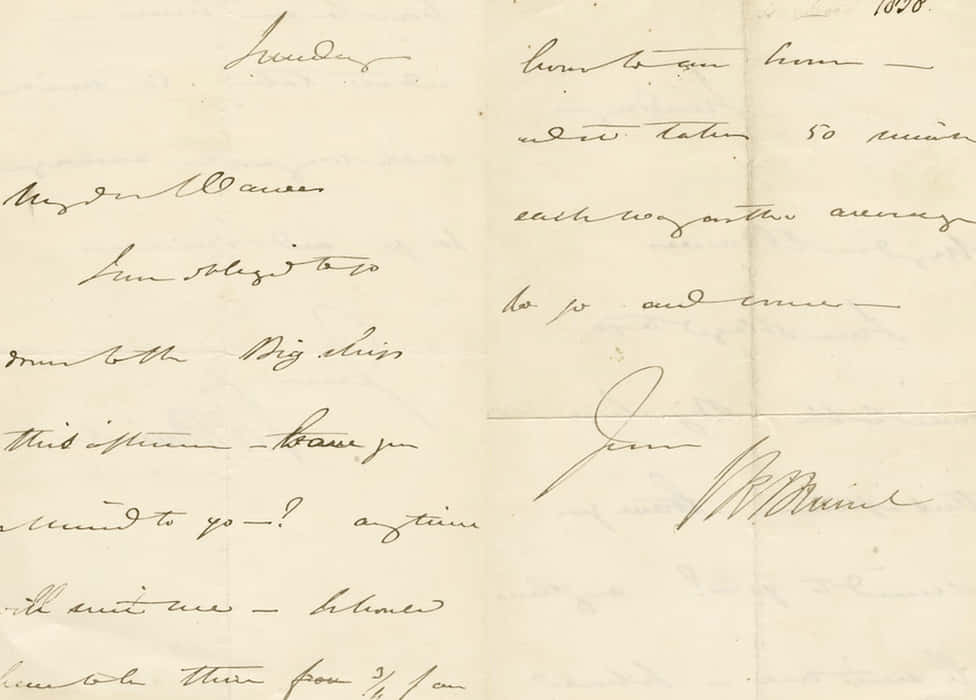 Sunday
My dear
I am obliged to go
down to the Big ship
this afternoon – have you
a mind to go –? any time
will suit me – I should
have to be there from 3/4 of an
1858.
hour to an hour –
and it takes 50 minutes
each way on the average
to go and come –
Yours
I K Brunel